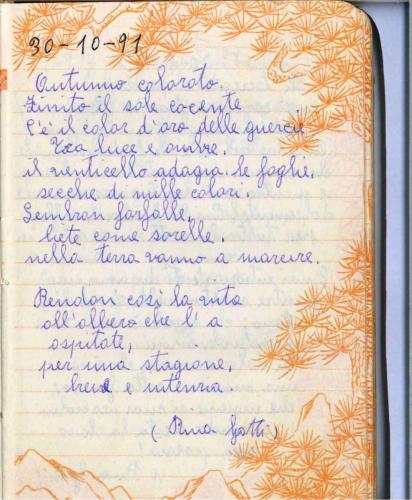 30-10-91
Autunno colorato.
Finito il sole cocente
C'è il color d'oro delle querce
Tra luce e ombre.
il venticello adagia le foglie,
secche di mille colori.
Sembran farfalle,
liete come sorelle,
nella terra vanno a marcire.
Rendon così la vita
all'albero che l'a
ospitate,
per una stagione,
breve e intensa.
(Pina Gatti)